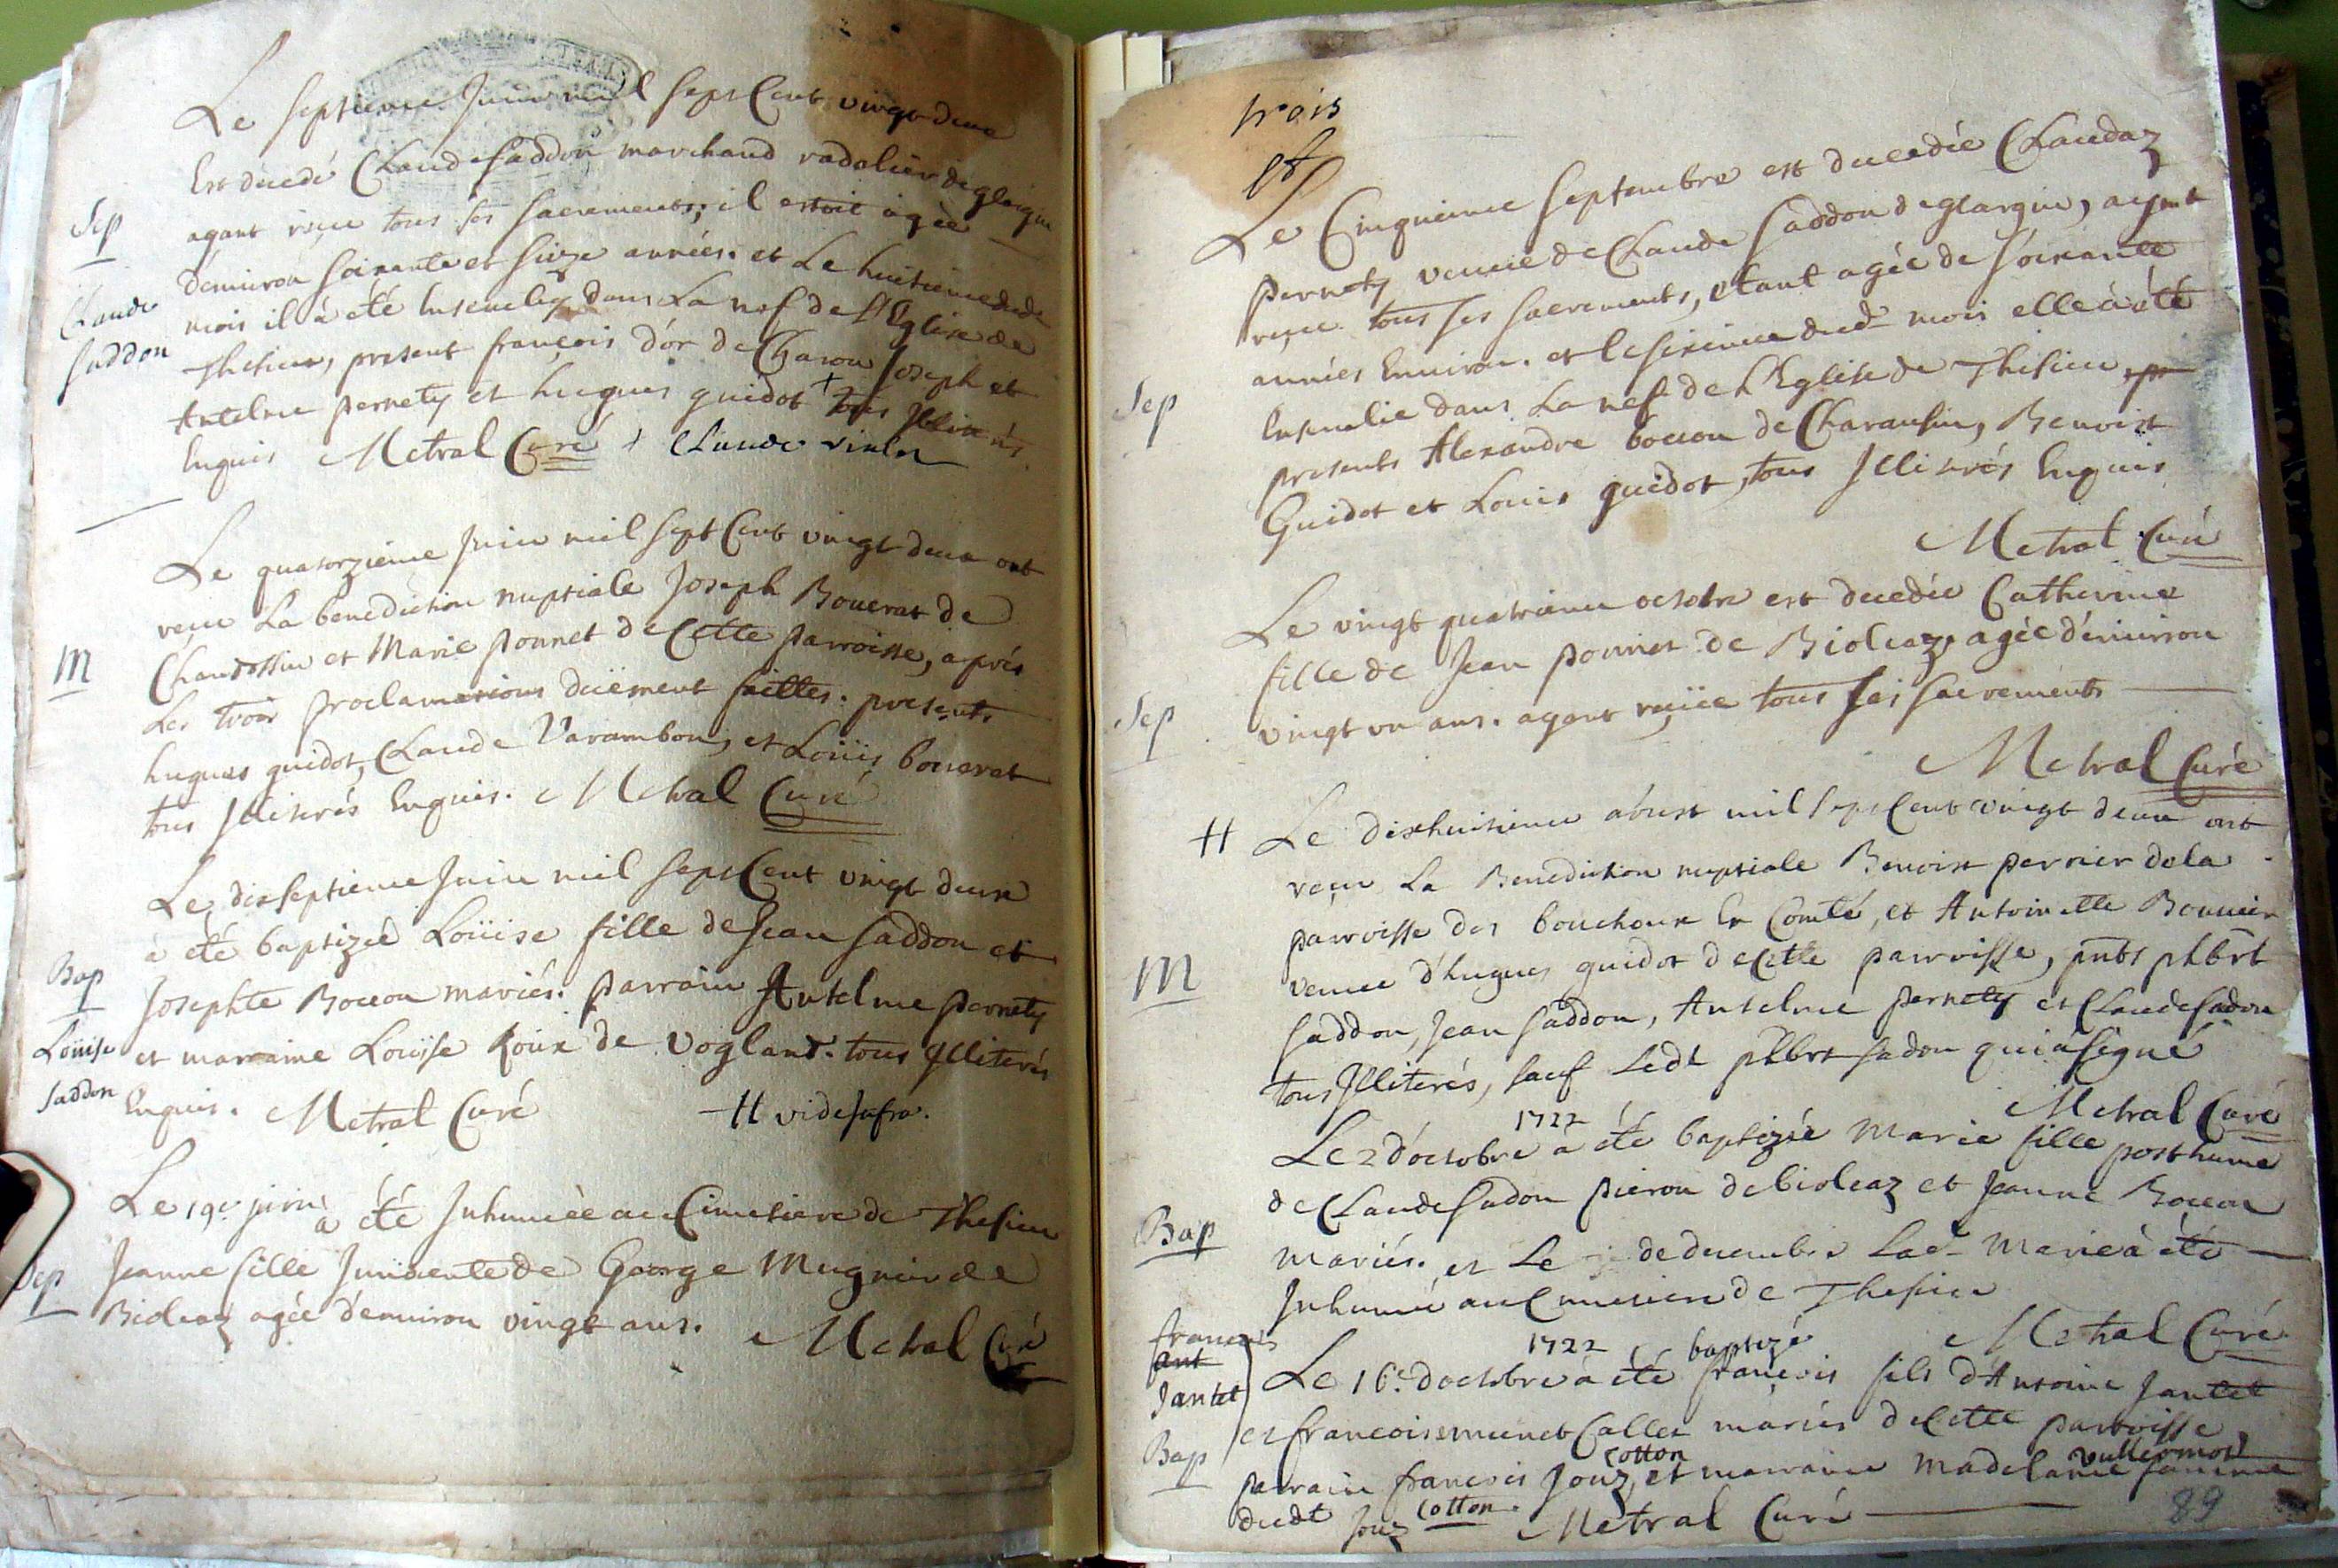 Le septieme Juin mil sept Cent vingt deux
Est decedé Claude Saddon marchand radelier
Sep
ayant reçu tous ses sacrements; il estoit agée
Claude
Saddon
d'environ soixante et seize années. et Le huitieme dud
mois il à été Enseuely dans La nef de l'Eglise de
Thesieu, present françois d'or de Charon Joseph et
Antelme pernety et hugues guidot + tous
Enquis Metral Curé + Claude
Le quatorzieme Juin mil sept Cent vingt deux ont
reçu La benediction nuptiale Joseph Bouerat de
M
et Marie ponnet de Cette parroisse, aprés
Les trois proclamations düement faittes. presents
hugues guidot, Claude Varambon, et Loüis bouerat
tous Illiterés Enquis. Metral Curé
Le dixseptieme Juin mil sept Cent vingt deux
à été baptizeé Loüise fille de Jean Saddon et
Bap
Josephte Bocion mariés. parrain Antelme pernety
Loüise
Saddon
et marraine Louÿse Roux de Vogland. tous Illiterés
Enquis. Metral Curé H vide Infra.
Le 19e juin a été Inhumeé au Cimetiere de Thesieu
Sep
Jeanne fille de George Mugnier de
Bioleaz agée d'environ vingt ans. Metral Curé
trois
Le Cinquieme Septembre est decedée Claudaz
pernety veuue de Claude Saddon deglargin, ayant
reçu tous ses sacrements, etant agée de soixante
années Environ. et le sixieme dud mois elle à été
Sep
Enseuelie dans La nef de L'Eglise de Thesieu
presents Alexandre bocion de Charansin, Benoist
Guidot et Louis guidot, tous Illiterés Enquis
Metral Curé
Le vingt quatrieme octobre est decedée Catherine
fille de Jean ponnet de Bioleaz, agée d'environ
Sep
vingt un ans. ayant reçüe tous ses sacrements
Metral Curé
H Le dixhuitieme aoust mil sept Cent vingt deux ont
reçu La Benediction nuptiale Benoist perrier de la
parroisse des bouchoux En Comté, et Antoinette Bonnier
M
veuue d'hugues guidot de Cette parroisse, pnts phbrt
Saddon, Jean Saddon, Antelme pernety et Claude Sadon
tous Illiterés, sauf Ledt phbrt Sadon qui à signé
Metral Curé
1722
Le 2 d'octobre a été baptizée Marie fille posthume
de Claude Sadon pieron de bioleaz et Jeanne Bocion
Bap
mariés. et Le de decembre Lad. Marie à été
Inhumé au Cimetiere de Thesieu
Metral Curé
1722 baptizé
françois
ant
Jantet
Le 16e d'octobre à été françois fils d'Antoine Jantet
et françoise Callet mariés de Cette parroisse,
Bap
cotton vullermos
parrain françois Jouz, et marraine Madelaine femme
dudt Jouz Cotton. Metral Curé
89